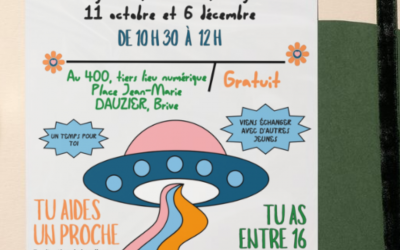 11 octobre et 6 décembre
DE 10 H 30 À 12 H
Au 400, tiers lieu numérique
Place Jean-Marie
DAUZIER, Brive
Gratuit
UN TEMPS POUR
TOI
VIENS ÉCHANGER
AVEC D'AUTRES
JEUNES
TU AIDES
UN PROCHE
TU AS
ENTRE 16